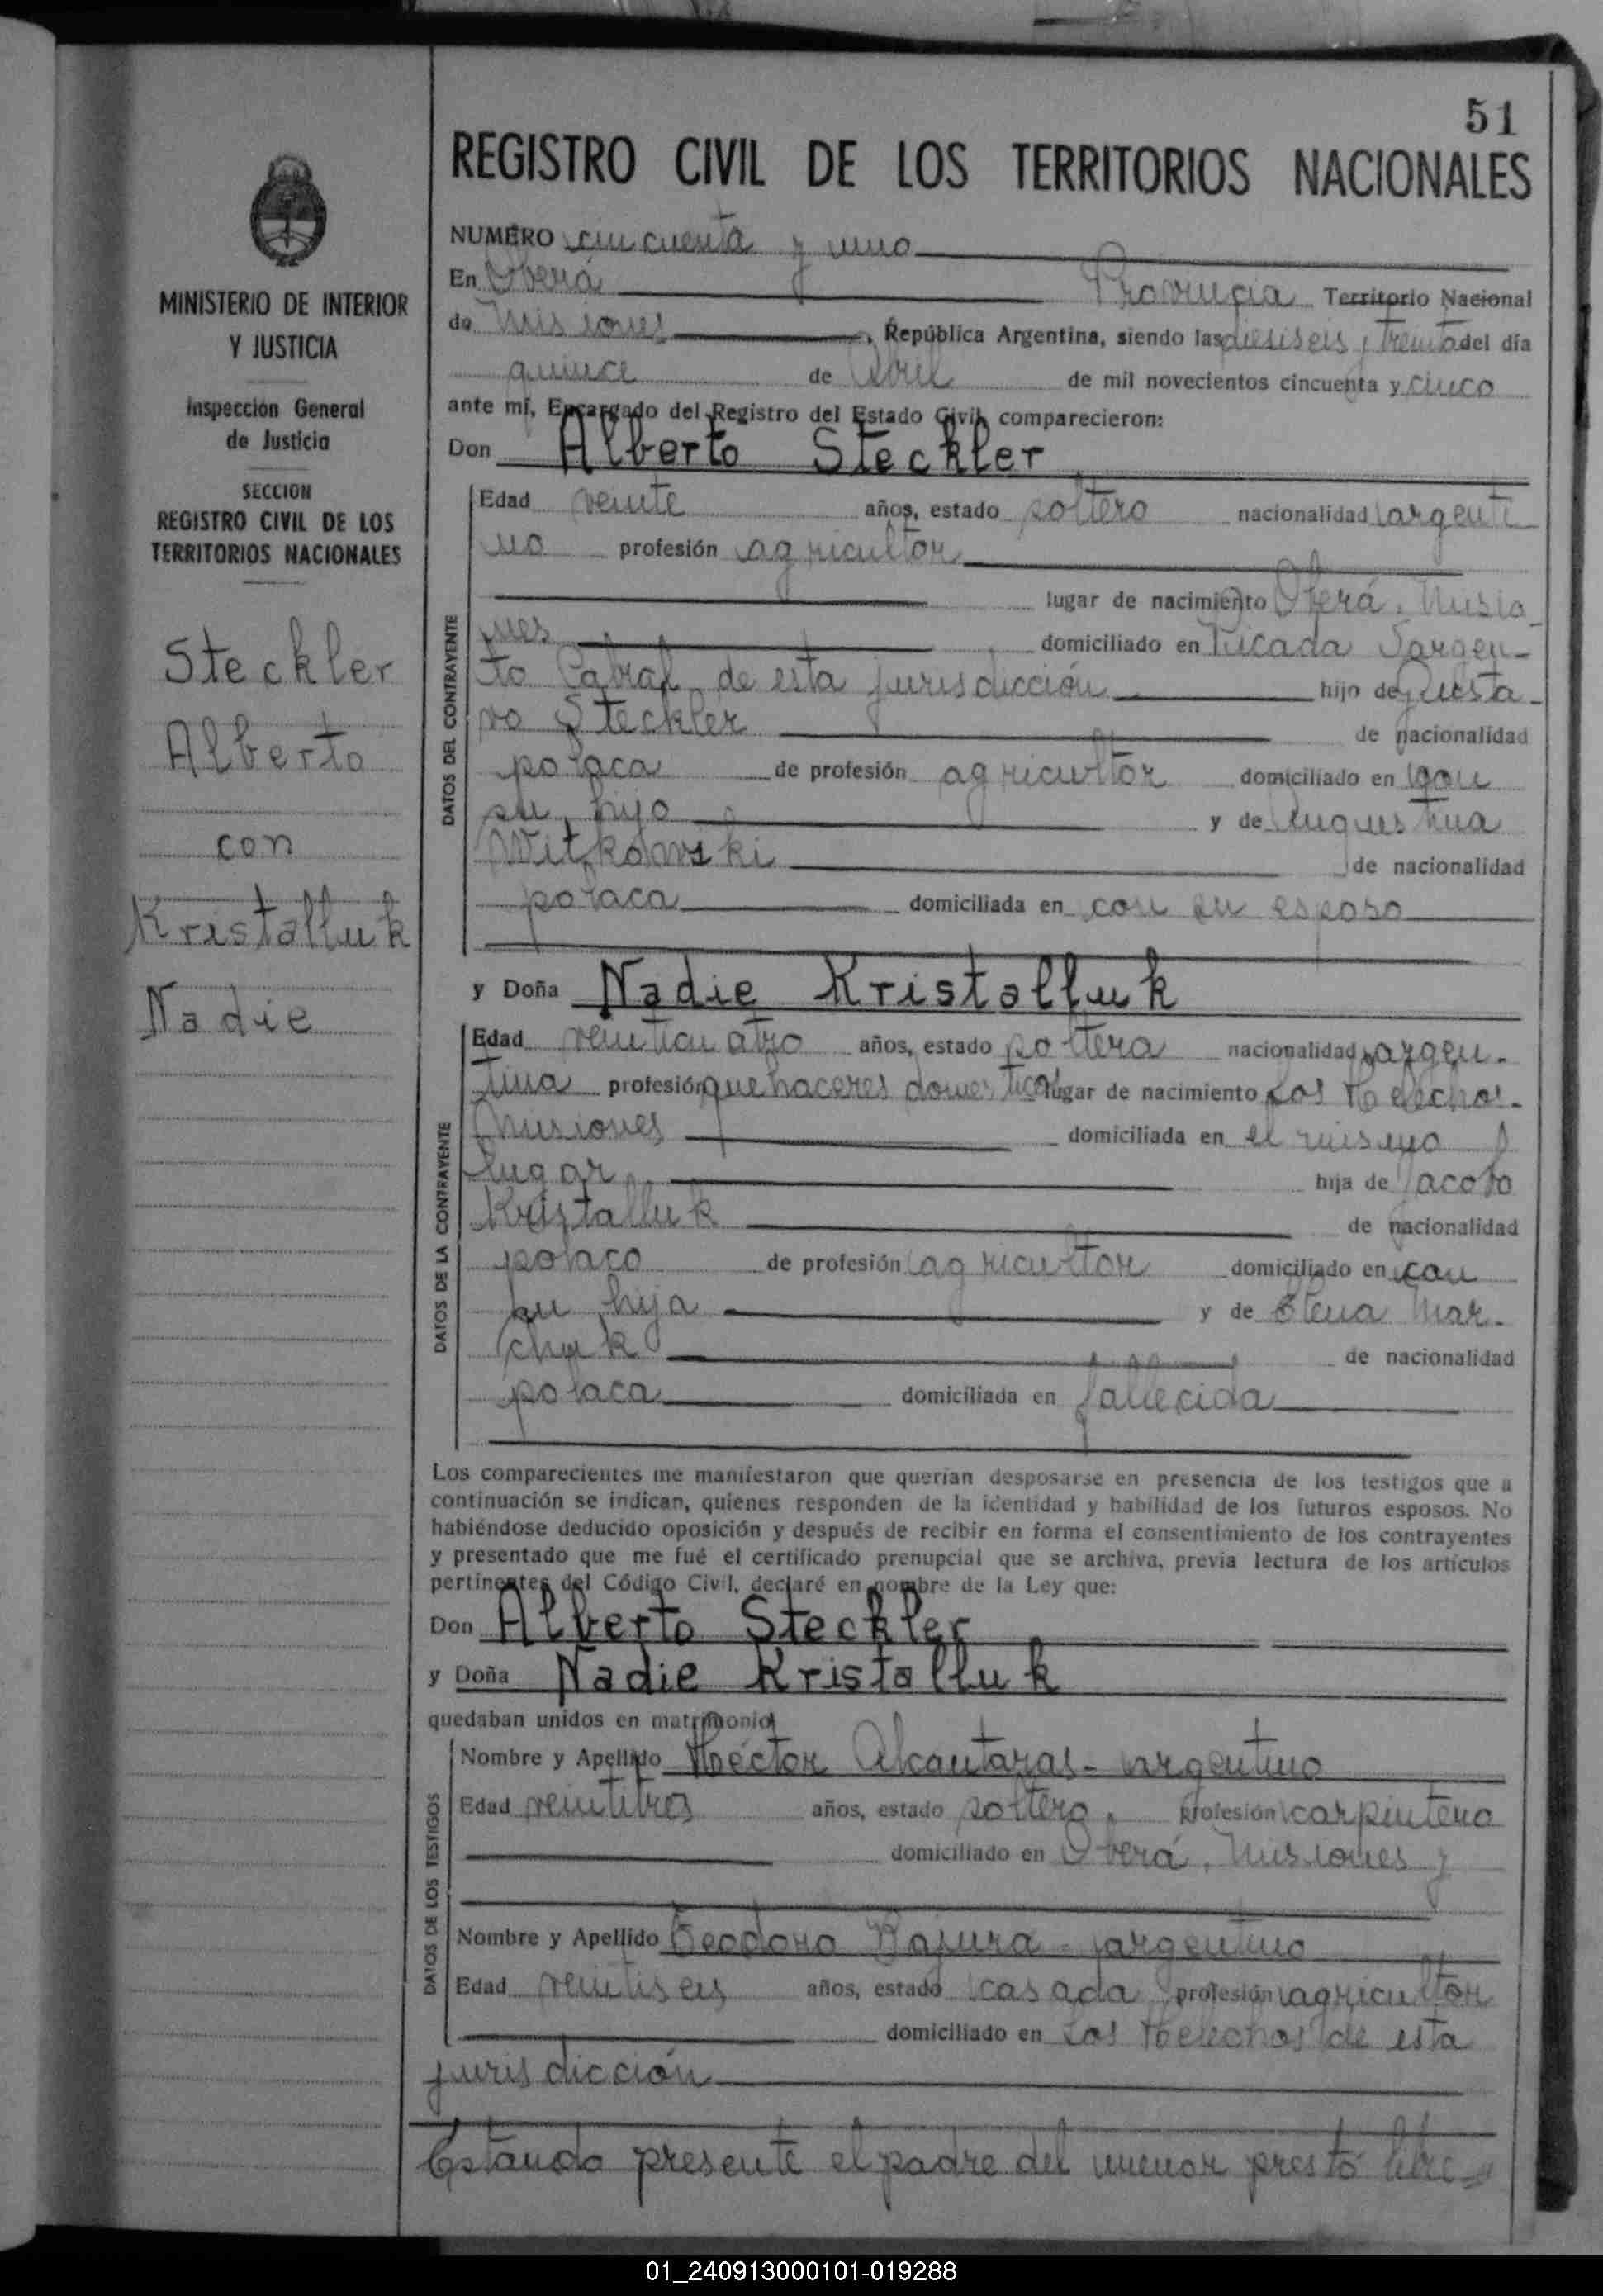 51
REGISTRO CIVIL DE LOS TERRITORIOS NACIONALES
MINISTERIO DE INTERIOR
Y JUSTICIA
Inspección General
de Justicia
SECCION
REGISTRO CIVIL DE LOS
TERRITORIOS NACIONALES
Steckler
Alberto
con
Kristalluk
Nadie
NUMERO cincuenta y uno
En Oberá Provincia Territorio Nacional
de Misiones, República Argentina, siendo las dieciseis y treinta del día
quince de Abril de mil novecientos cincuenta y cinco
ante mí, Encargado del Registro del Estado Civil, comparecieron:
Don Alberto Steckler
DATOS DEL CONTRAYENTE
Edad veinte años, estado soltero nacionalidad argenti
no profesión agricultor
lugar de nacimiento Oberá, Misio
nes domiciliado en Picada Sargen-
to Cabral de esta jurisdicción hijo de Gusta-
vo Steckler de nacionalidad
polaca de profesión agricultor domiciliado en con
su hijo y de Augustina
Witkowski de nacionalidad
polaca domiciliada en con su esposo
y Doña Nadie Kristalluk
DATOS DE LA CONTRAYENTE
Edad veinticuatro años, estado soltera nacionalidad argen-
tina profesión quehaceres domesticos lugar de nacimiento Los Helechos-
Misiones domiciliada en el mismo
lugar hija de Jacobo
Kristalluk de nacionalidad
polaco de profesión agricultor domiciliado en con
su hija y de Elena Mar-
chuk de nacionalidad
polaca domiciliada en fallecida
Los comparecientes me manifestaron que querían desposarse en presencia de los testigos que a
continuación se indican, quienes responden de la identidad y habilidad de los futuros esposos. No
habiéndose deducido oposición y después de recibir en forma el consentimiento de los contrayentes
y presentado que me fué el certificado prenupcial que se archiva, previa lectura de los artículos
pertinentes del Código Civil, declaré en nombre de la Ley que:
Don Alberto Steckler
y Doña Nadie Kristalluk
quedaban unidos en matrimonio
DATOS DE LOS TESTIGOS
Nombre y Apellido Héctor Alcantaras- argentino
Edad veintitres años, estado soltero, profesión carpintero
domiciliado en Oberá, Misiones y
Nombre y Apellido Teodoro argentino
Edad veintiseis años, estado casada profesión agricultor
domiciliado en Los Helechos de esta
jurisdicción
Estando presente el padre del menor prestó libre
01_240913000101-019288